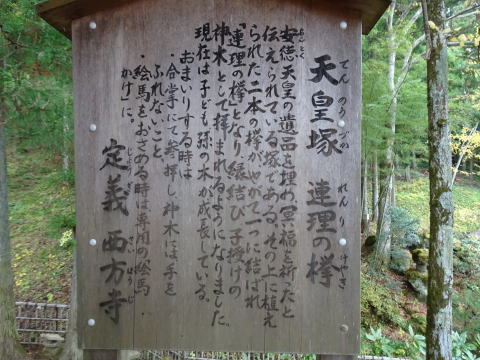 天皇塚 連理の欅
てんのうづか れんり けやき
安徳天皇の遺品を埋め冥福を祈ったと
あんとく
伝えられている塚である。その上に植え
られた二本の欅がやがて一つに結ばれ
「連理の欅」となり縁結び、子授けの
神木として拝まれるようになりました。
現在は子ども、孫の木が成長している。
おまいりする時は
・合掌にて参拝し、神木には手を
ふれないこと
・絵馬をおさめる時は専用の絵馬
かけに。
定義 西方寺
じょうぎ さいほうじ